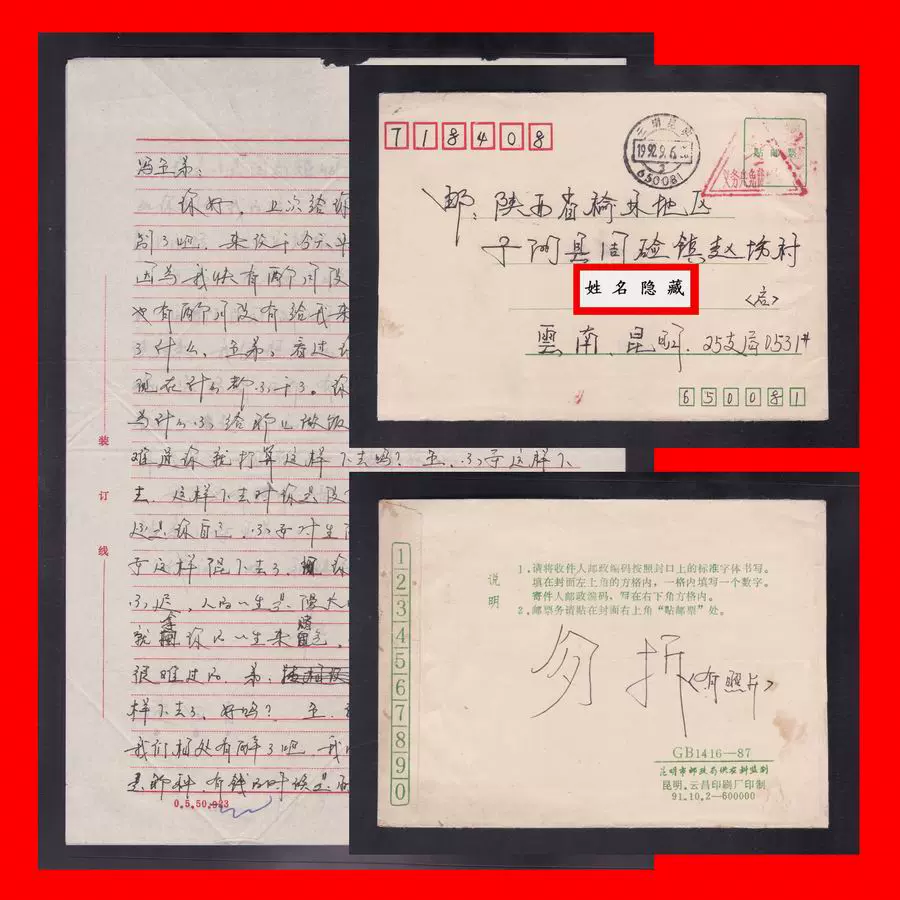 冯玉弟:
你好,上次给你
到了吧,来设于今天
因为我快有两个月没
也有两个月没有给我来
了什么,玉弟,看过
现在什么都不干了。你
为什么不给那儿做饭
难道你就打算这样下去吗?玉,不要这样下
去,这样下去对你是没
还是你自己,不要对生
要这样混下去了,你
不迟,人的一生是漫长
就拿你的一生来
很难过的,弟,
样下去了,好吗?玉,
我们相处有
是那种有钱的时候是
0.5.50.923
装
订
线
718408
云南昆明
1992.9.6
650081
义务兵免费
贴邮票
邮:陕西省榆林地区
子洲县周硷镇赵坬村
姓名隐藏
<启>
雲南昆明.25支局0531#
650081
1
2
3
4
5
6
7
8
9
0
说明
1.请将收件人邮政编码按照封口上的标准字体书写。
填在封面左上角的方格内,一格内填写一个数字。
寄件人邮政编码,写在右下角方格内。
2.邮票务请贴在封面右上角“贴邮票”处。
勿折<有照片>
GB1416—87
昆明市邮政局供应科监制
昆明.云昌印刷厂印制
91.10.2—600000